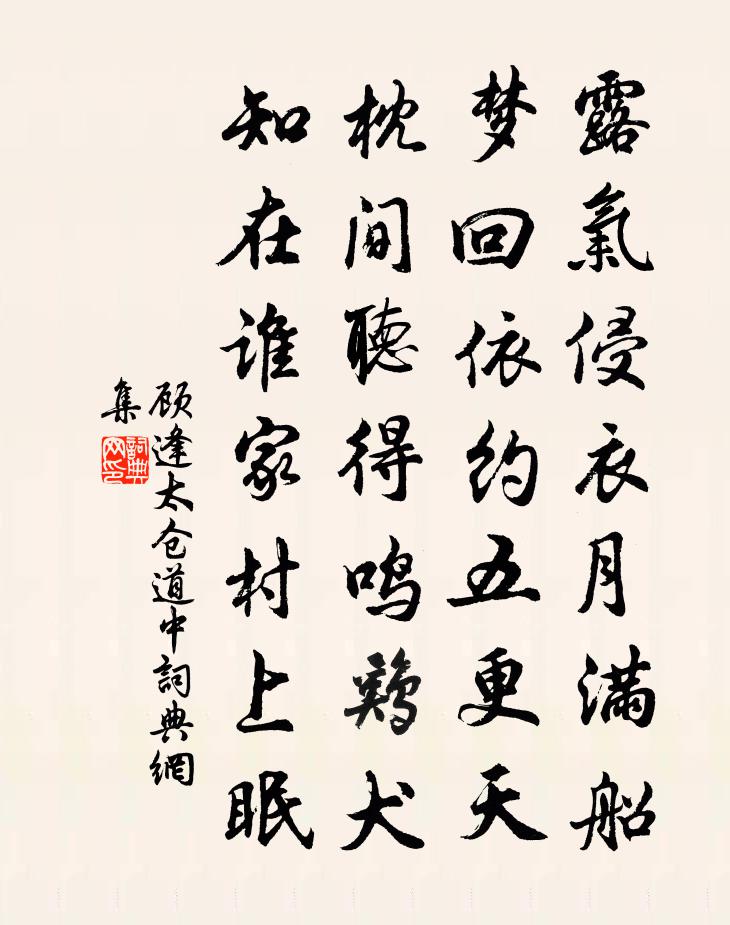 露氣侵衣月满船
梦回依约五更天
枕间聽得鸣鷄犬
知在谁家村上眠
顾逢太仓道中詞典網
集
詞典
网印